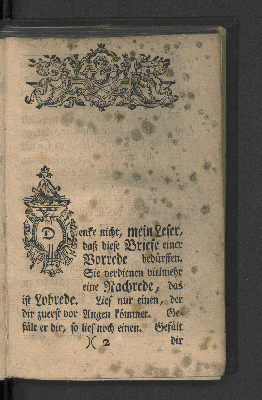 Denke nicht, mein Leser,
daß diese Briefe einer
Vorrede bedürffen.
Sie verdienen vielmehr
eine Nachrede, das
ist Lobrede. Lies nur einen, der
dir zuerst vor Augen kömmet. Ge-
fält er dir, so lies noch einen. Gefält
)( 2 dir